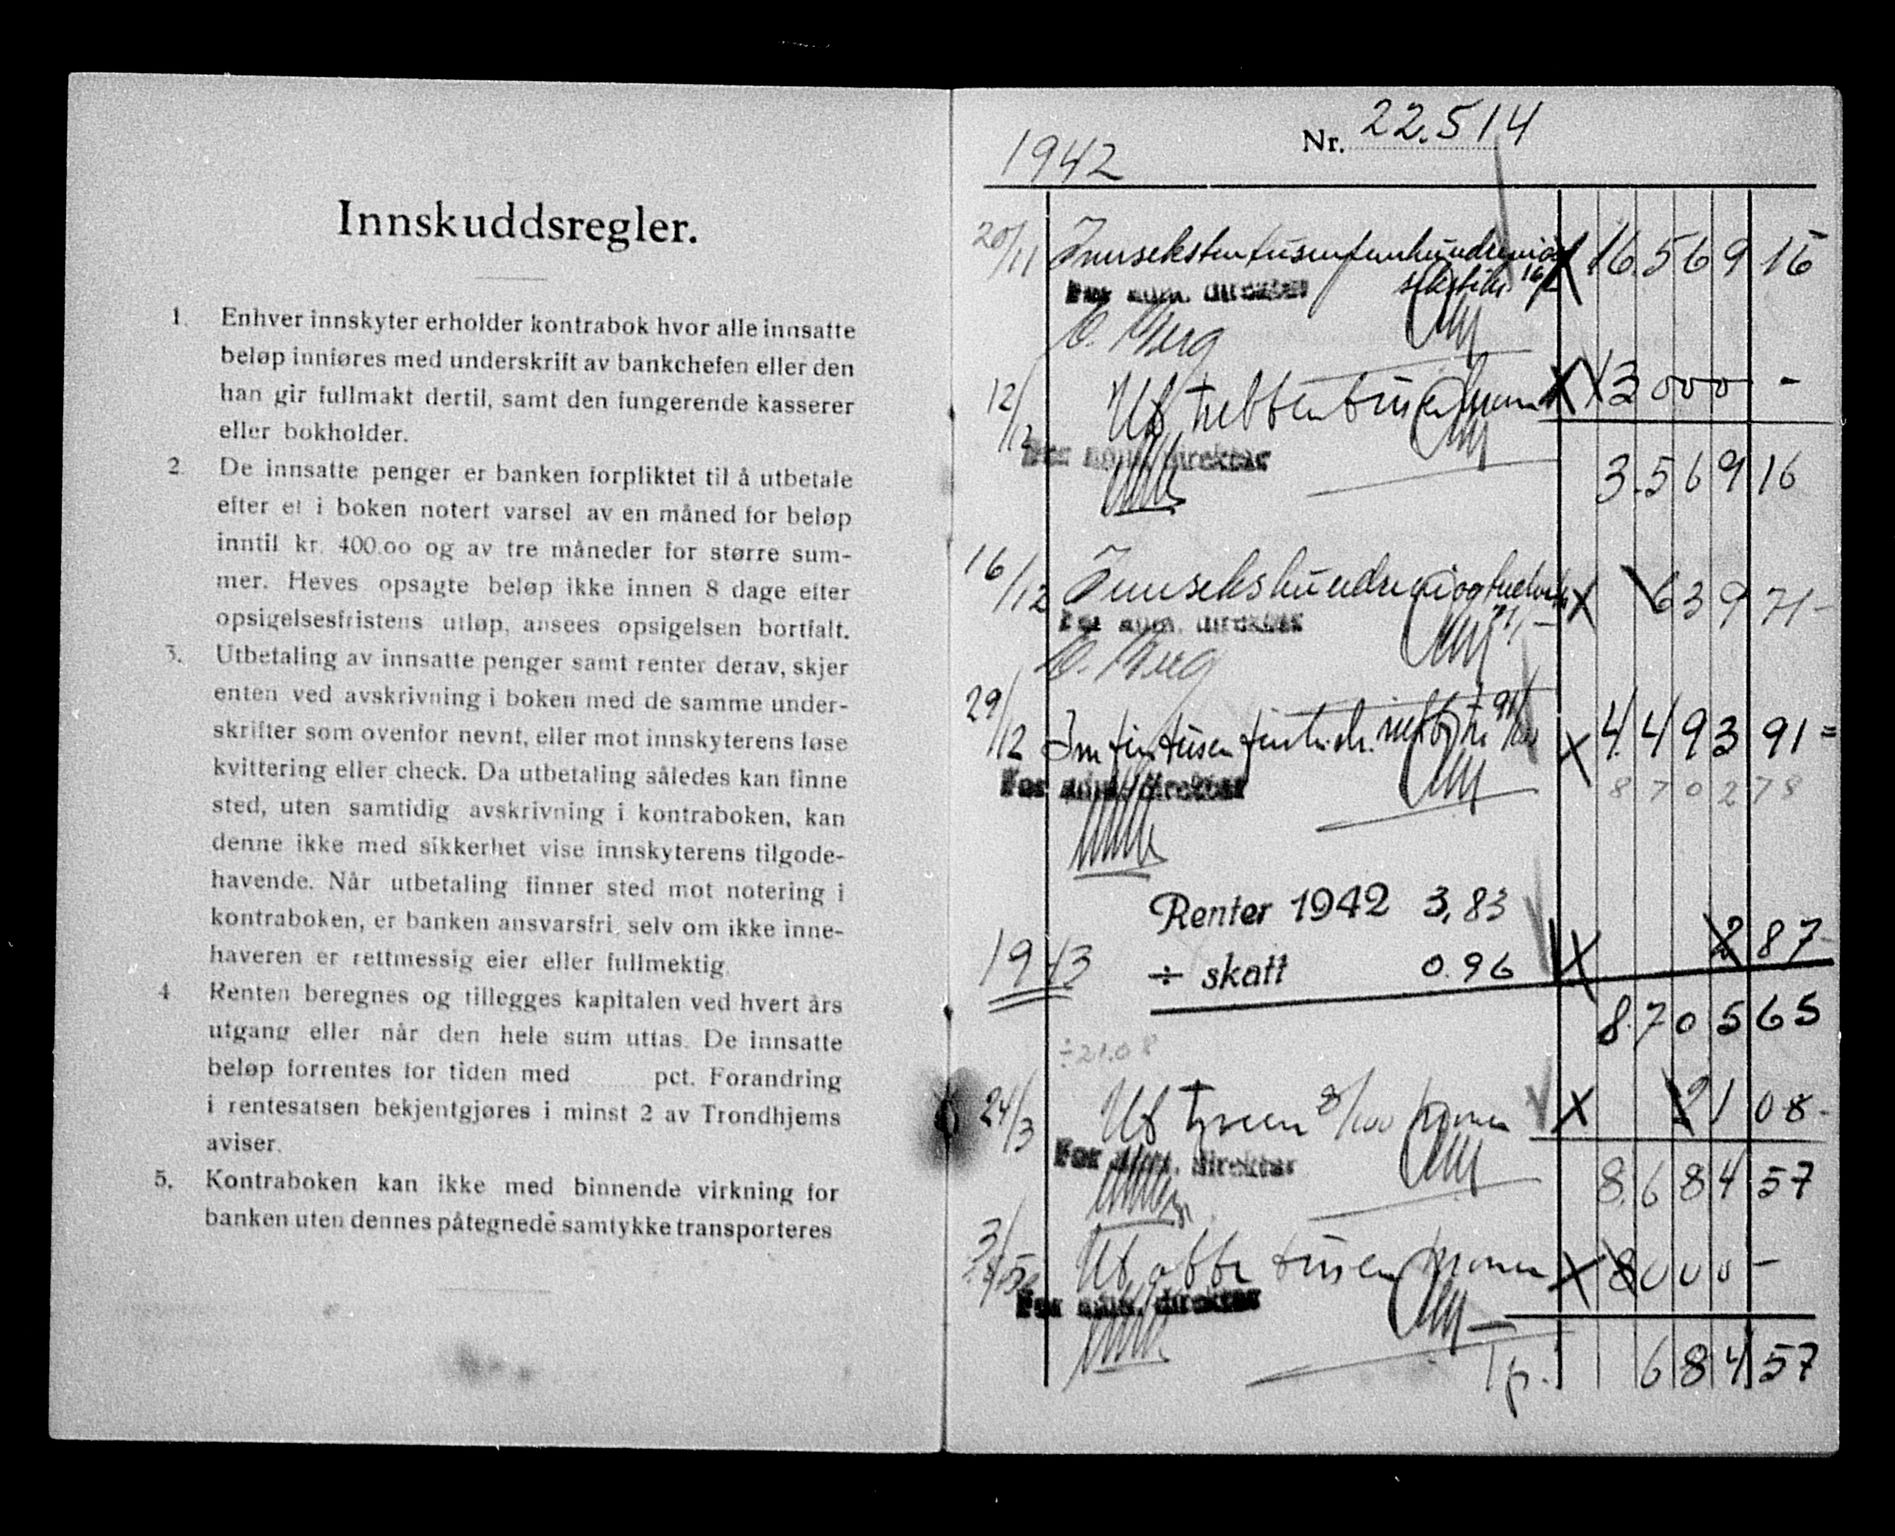 Innskuddsregler.
1. Enhver innskyter erholder kontrabok hvor alle innsatte
beløp innføres med underskrift av bankchefen eller den
han gir fullmakt dertil, samt den fungerende kasserer
eller bokholder.
2. De innsatte penger er banken forpliktet til å utbetale
efter et i boken notert varsel av en måned for beløp
inntil kr. 400.oo og av tre måneder for større sum-
mer. Heves opsagte beløp ikke innen 8 dage efter
opsigelsesfristens utløp, ansees opsigelsen bortfalt.
3. Utbetaling av innsatte penger samt renter derav, skjer
enten ved avskrivning i boken med de samme under-
skrifter som ovenfor nevnt, eller mot innskyterens løse
kvittering eller check. Da utbetaling således kan finne
sted, uten samtidig avskrivning i kontraboken, kan
denne ikke med sikkerhet vise innskyterens tilgode-
havende. Når utbetaling finner sted mot notering i
kontraboken, er banken ansvarsfri, selv om ikke inne-
haveren er rettmessig eier eller fullmektig.
4 Renten beregnes og tillegges kapitalen ved hvert års
utgang eller når den hele sum uttas. De innsatte
beløp forrentes for tiden med ...... pct. Forandring
i rentesatsen bekjentgjøres i minst 2 av Trondhjems
aviser.
5. Kontraboken kan ikke med binnende virkning for
banken uten dennes påtegnede samtykke transporteres
Nr. 22.514
1942
20/11 Innsekstentusenfemhundreni og 16.569 16
seksti kr. 16/
For adm. direktør
O. Berg
12/12 Ut tretten tusen kroner 13000 -
For adm. direktør
3.569 16
16/12 Innsekshundreniogtredve kr 639 71 -
71/ -
For adm. direktør
O. Berg
29/12 Inn firetusen firehndr. nittitre 91/100 4.493 91 =
For adm. direktør 870278
Renter 1942 3,83 2 87 -
1943 ÷ skatt 0.96
8.705 65
÷21.08
24/3 Ut tyveen 8/100 kroner 21 08 -
For adm. direktør
8.684 57
3/5 Ut otte tusen kroner 8000 -
For adm. direktør
684 57